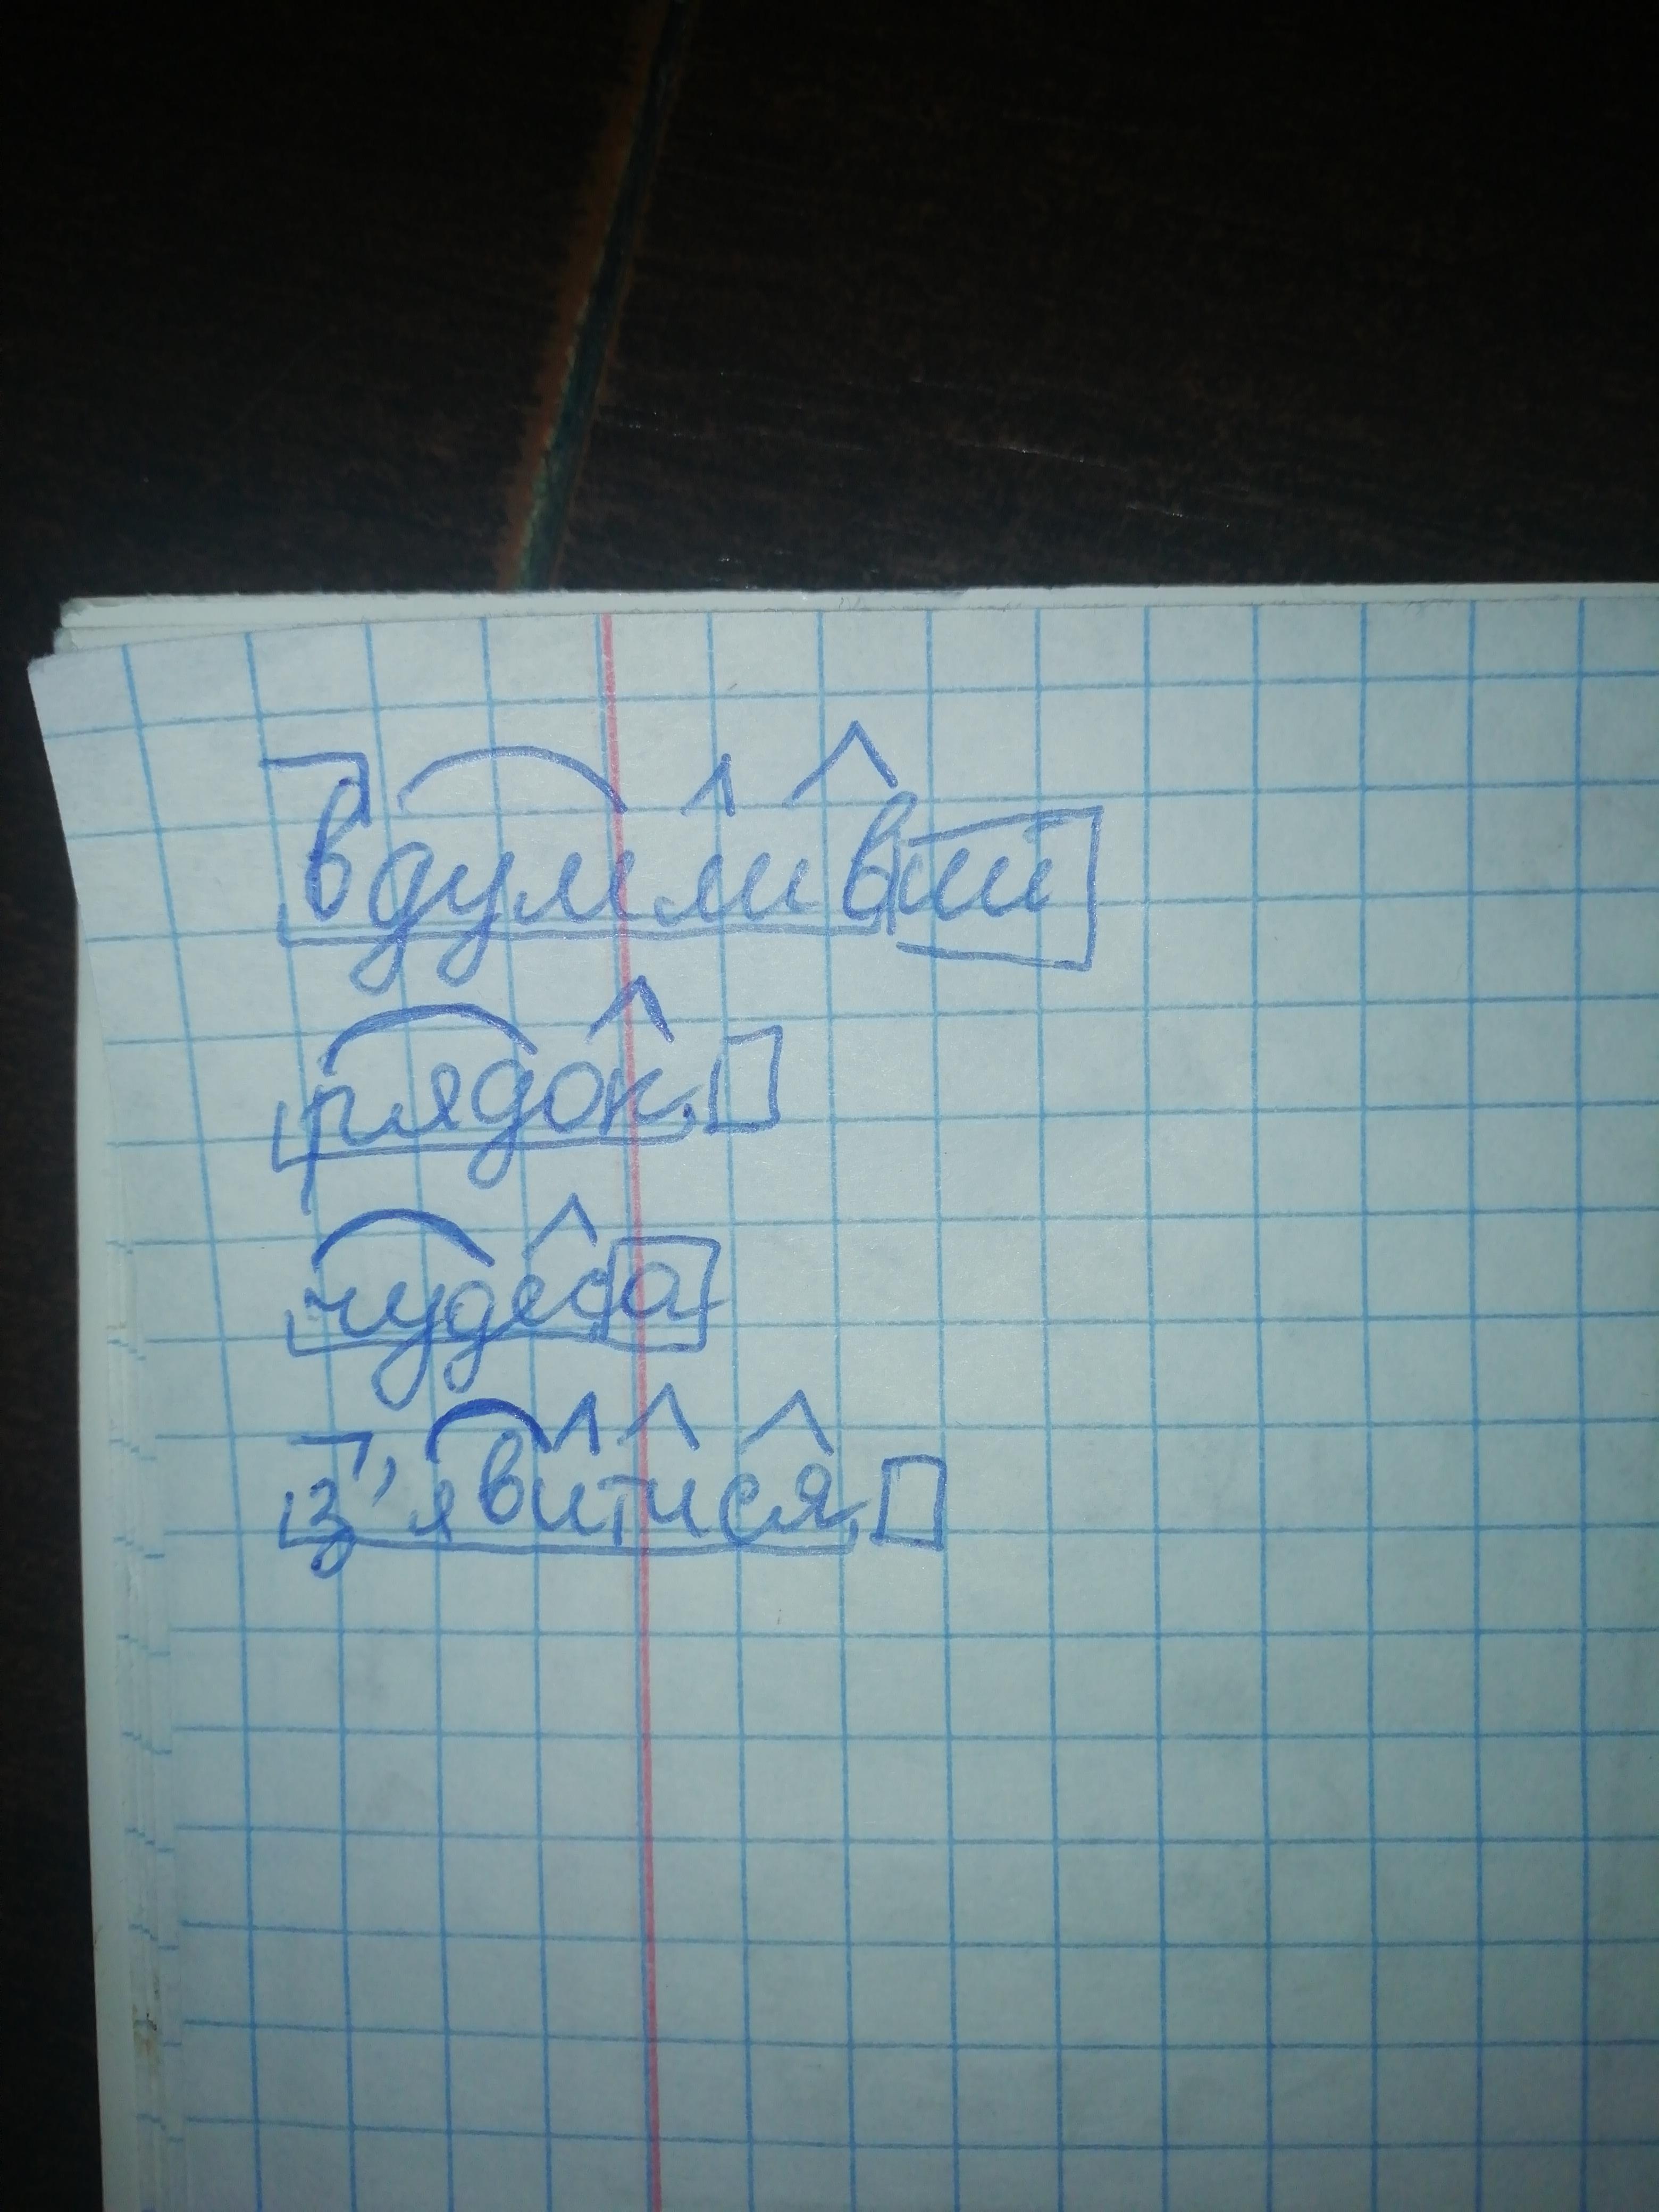 вдумливий
рядок
чудеса
з'явитися